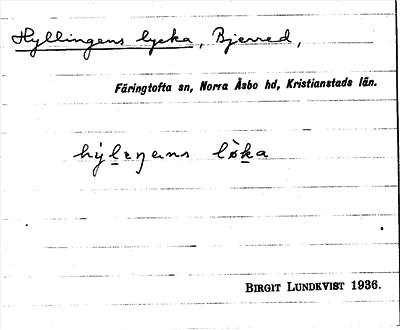 Hyllingens lycka, Bjerred,
Färingtofta sn, Norra Åsbo hd, Kristianstads län.
hý̀lɪŋəns lø̀ka
BIRGIT LUNDKVIST 1936.